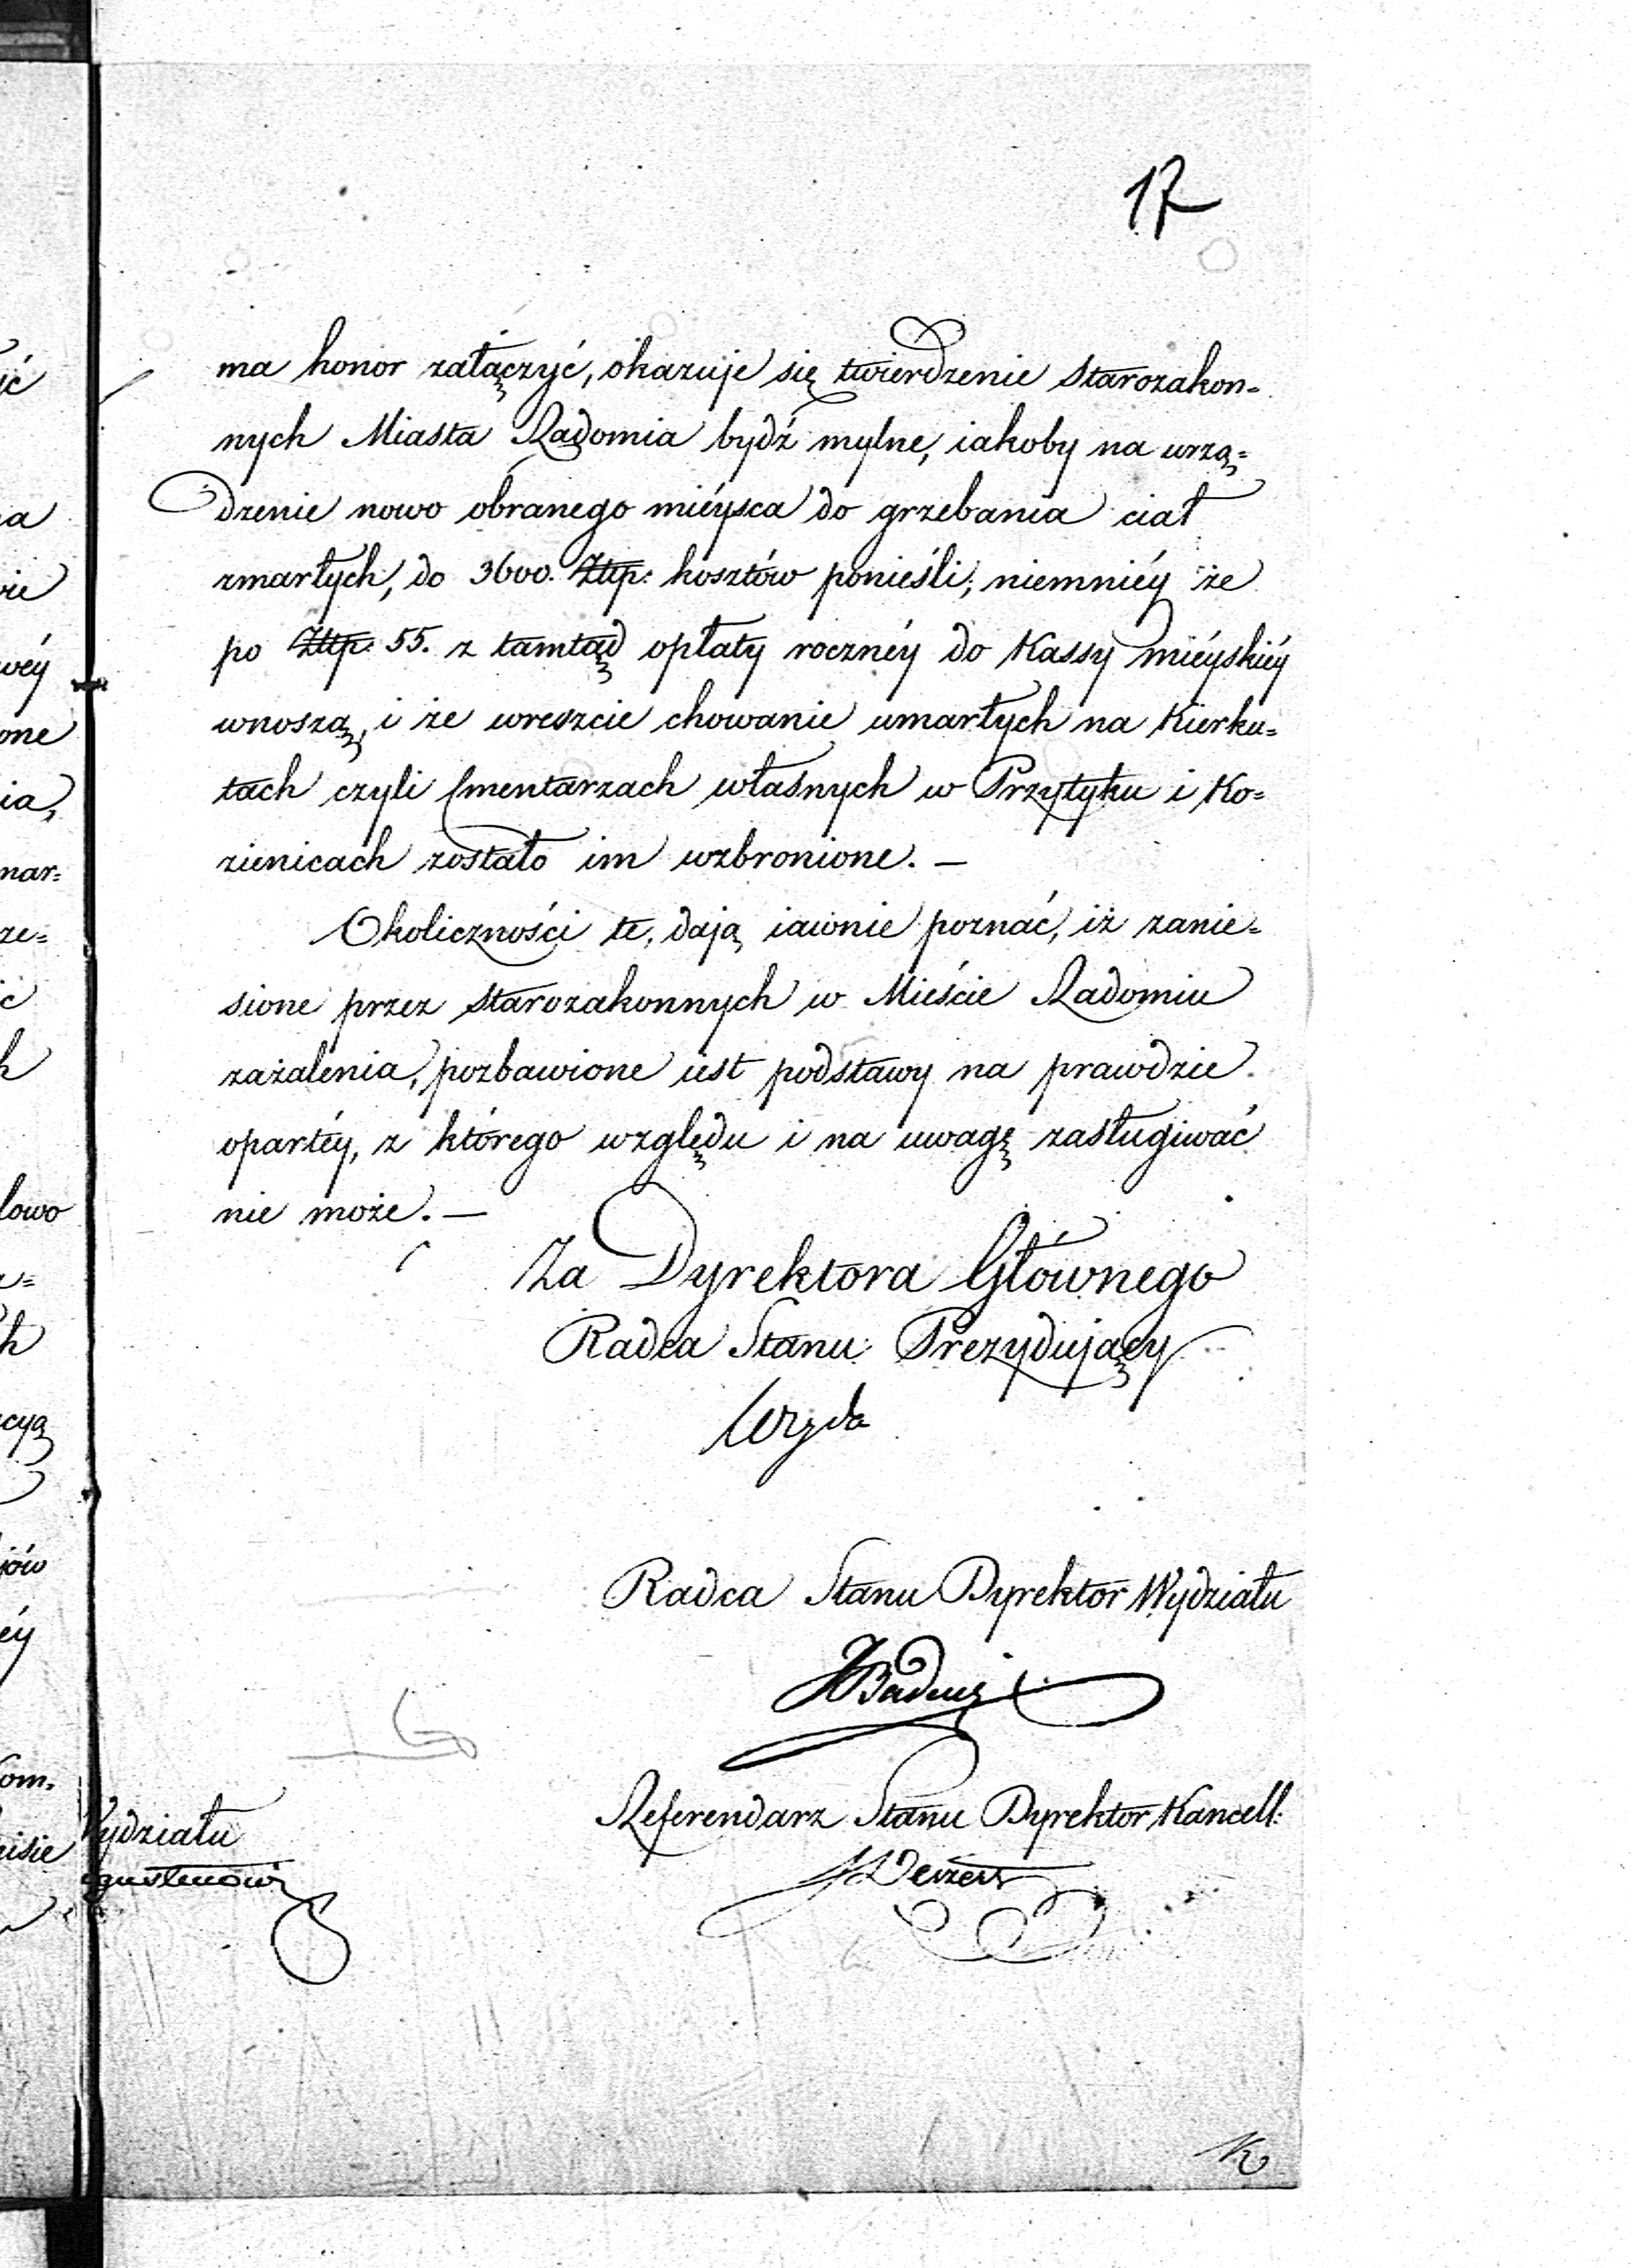 17
ma honor załączyć, okazuje się twierdzenie starozakon-
nych Miasta Radomia bydź mylne, iakoby na urzą=
dzenie nowo obranego mieysca do grzebania ciał
zmarłych, do 3600. Złtp: kosztów ponieśli; niemniéy że
po Złtp: 55. z tamtąd opłaty rocznéy do Kassy miéyskiéy
wnoszą, i że wreszcie chowanie umarłych na Kierku=
tach czyli Cmentarzach własnych w Przytyku i Ko=
zienicach zostało im wzbronione. —
Okoliczności te, dają iawnie poznać, iż zanie=
sione przez starozakonnych w Mieście Radomiu
zażalenia, pozbawione iest podstawy na prawdzie
opartéy, z którego względu i na uwagę zasługiwać
nie może. —
Za Dyrektora Głównego
Radca Stanu Prezydujący
Radca Stanu Dyrektor Wydziału
Badeni
Referendarz Stanu Dyrektor Kancell:
Wydziału